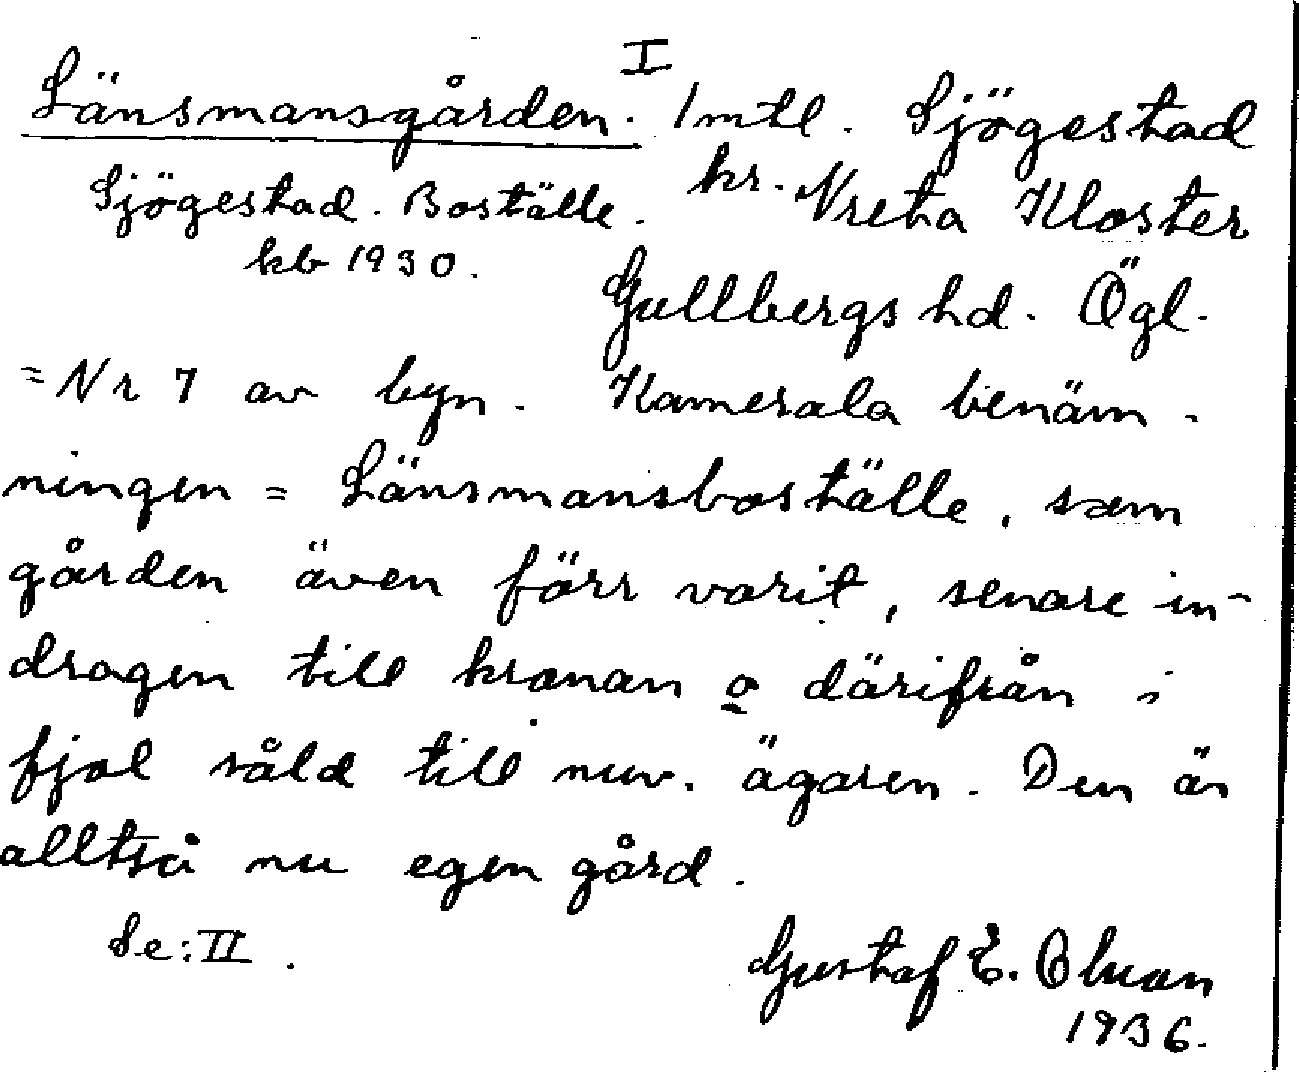 I
Länsmansgården. 1 mtl. Sjögestad
Sjögestad. Boställe. kr. Vreta Kloster
kb 1930.
Gullbergs hd. Ögl.
= Nr 7 av byn. Kamerala benäm-
ningen = Länsmansboställe, som
gården även förr varit, senare in-
dragen till kronan o därifrån i
fjol såld till nuv. ägaren. Den är
alltså nu egen gård.
Se: II.
Gustaf E.
1936.